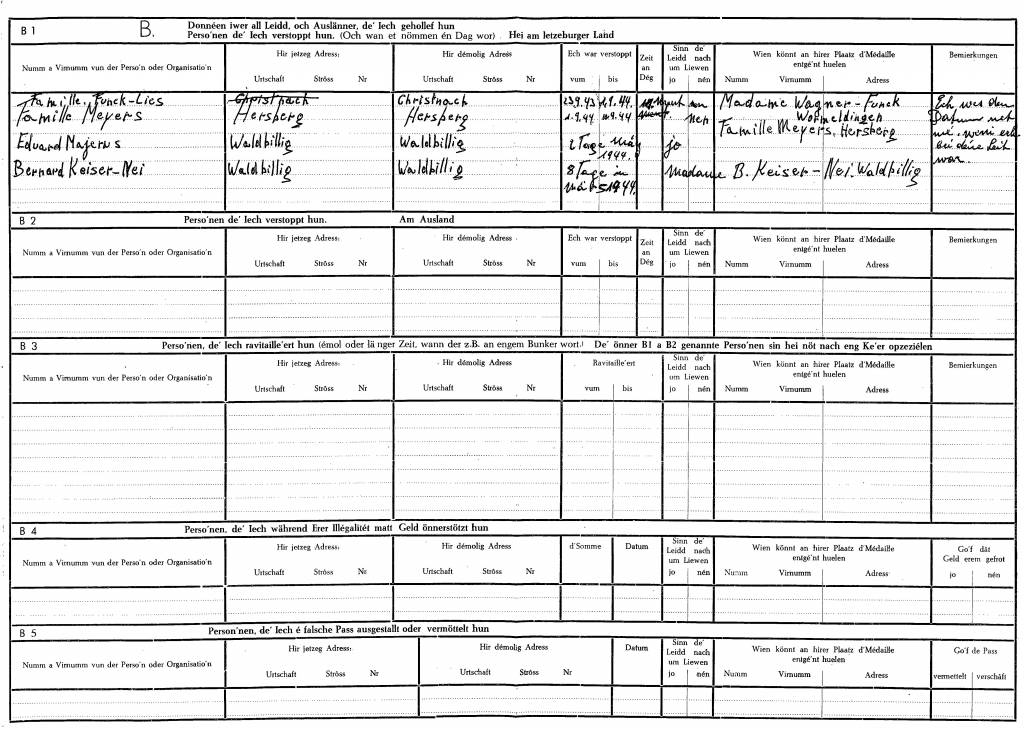 B 1 B. Donnéen iwer all Leidd, och Auslänner, de' Iech gehollef hun
Perso'nen de' Iech verstoppt hun. (Och wan et nömmen én Dag wor) Hei am letzeburger Land
Numm a Virnumm vun der Perso'n oder Organisatio'n Hir jetzeg Adress: Hir démolig Adress Ech war verstoppt Zeit an Dég Sinn de' Leidd nach um Liewen Wien könnt an hirer Plaatz d'Médaille entgé'nt huelen Bemierkungen
Urtschaft Ströss Nr Urtschaft Ströss Nr vum bis jo nén Numm Virnumm Adress
Famille Funck-Lies Christnach Christnach 23.9.43 1.9.44. Madame Wagner-Funck Ech wes den
Wormeldingen Datum net
Famille Meyers Hersberg Hersberg 1.9.44 9.44 nen Famille Meyers, Hersberg
Eduard Majerus Waldbillig Waldbillig 2 Tage Mäj 1944. jo bei
war.
Bernard Keiser-Nei Waldbillig Waldbillig 8 Tage in 1944. Madame B. Keiser-Nei. Waldbillig
B 2 Perso'nen de' Iech verstoppt hun. Am Ausland
Numm a Virnumm vun der Perso'n oder Organisatio'n Hir jetzeg Adress: Hir démolig Adress Ech war verstoppt Zeit an Dég Sinn de' Leidd nach um Liewen Wien könnt an hirer Plaatz d'Médaille entgé'nt huelen Bemierkungen
Urtschaft Ströss Nr Urtschaft Ströss Nr vum bis jo nén Numm Virnumm Adress
B 3 Perso'nen, de' Iech ravitaille'ert hun (émol oder länger Zeit, wann der z.B. an engem Bunker wort.) De' önner B1 a B2 genannte Perso'nen sin hei nöt nach eng Ke'er opzeziélen
Numm a Virnumm vun der Perso'n oder Organisatio'n Hir jetzeg Adress: Hir démolig Adress Ravitaille'ert Sinn de' Leidd nach um Liewen Wien könnt an hirer Plaatz d'Médaille entgé'nt huelen Bemierkungen
Urtschaft Ströss Nr Urtschaft Ströss Nr vum bis jo nén Numm Virnumm Adress
B 4 Perso'nen, de' Iech während Erer Illégalitét matt Geld önnerstötzt hun
Numm a Virnumm vun der Perso'n oder Organisatio'n Hir jetzeg Adress: Hir démolig Adress d'Somme Datum Sinn de' Leidd nach um Liewen Wien könnt an hirer Plaatz d'Médaille entgé'nt huelen Go'f dät Geld erem gefrot
Urtschaft Ströss Nr Urtschaft Ströss Nr jo nén Numm Virnumm Adress jo nén
B 5 Person'nen, de' Iech é falsche Pass ausgestallt oder vermöttelt hun
Numm a Virnumm vun der Perso'n oder Organisatio'n Hir jetzeg Adress: Hir démolig Adress Datum Sinn de' Leidd nach um Liewen Wien könnt an hirer Plaatz d'Médaille entgé'nt huelen Go'f de Pass
Urtschaft Ströss Nr Urtschaft Ströss Nr jo nén Numm Virnumm Adress vermettelt verschäft